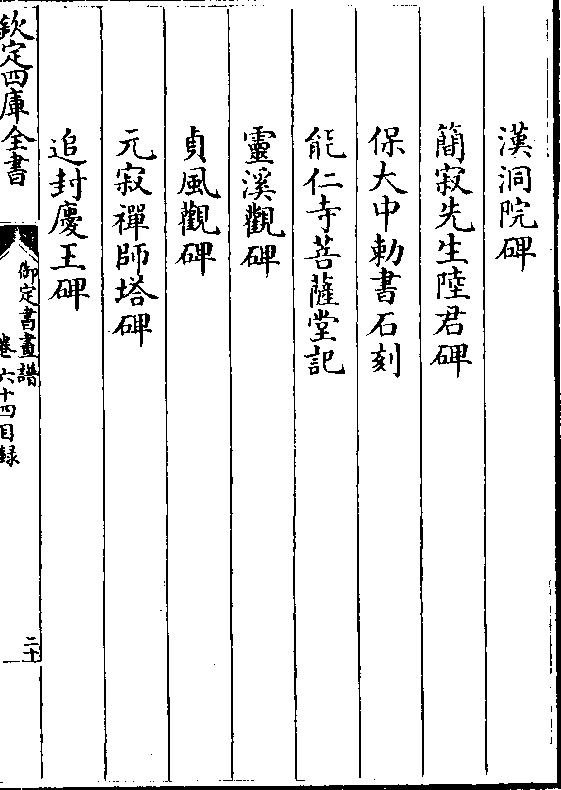 漢洞院碑
簡寂先生陸君碑
保大中勅書石刻
能仁寺菩薩堂記
靈溪觀碑
貞風觀碑
元寂禪師塔碑
追封慶王碑
欽定四庫全書
御定書畫譜
卷六十四目録
二十